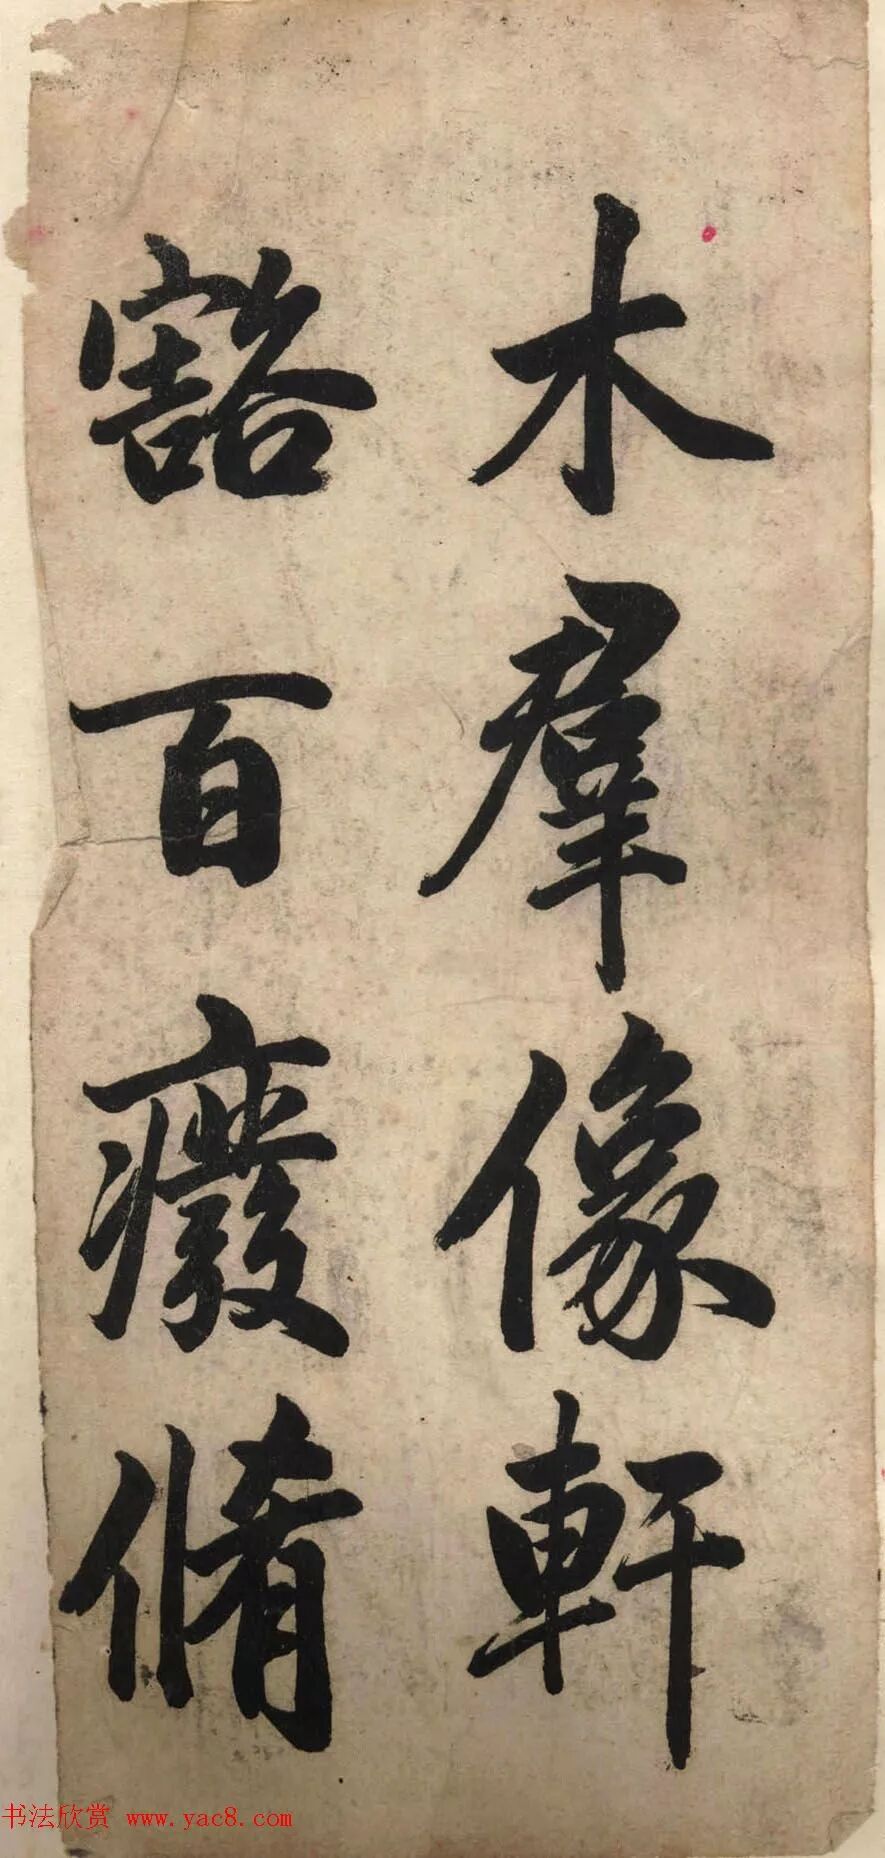 木羣像軒
豁百廢脩
书法欣赏 www.yac8.com